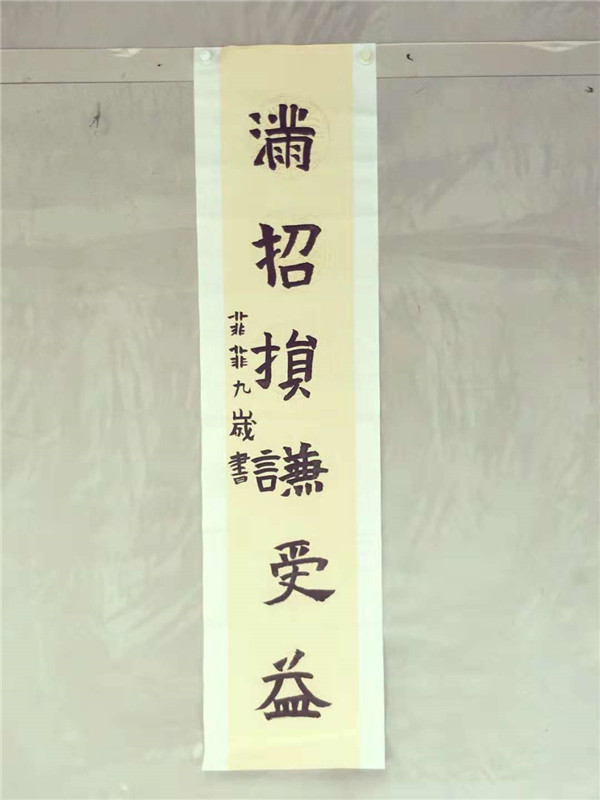 滿招損謙受益
菲菲九歲書